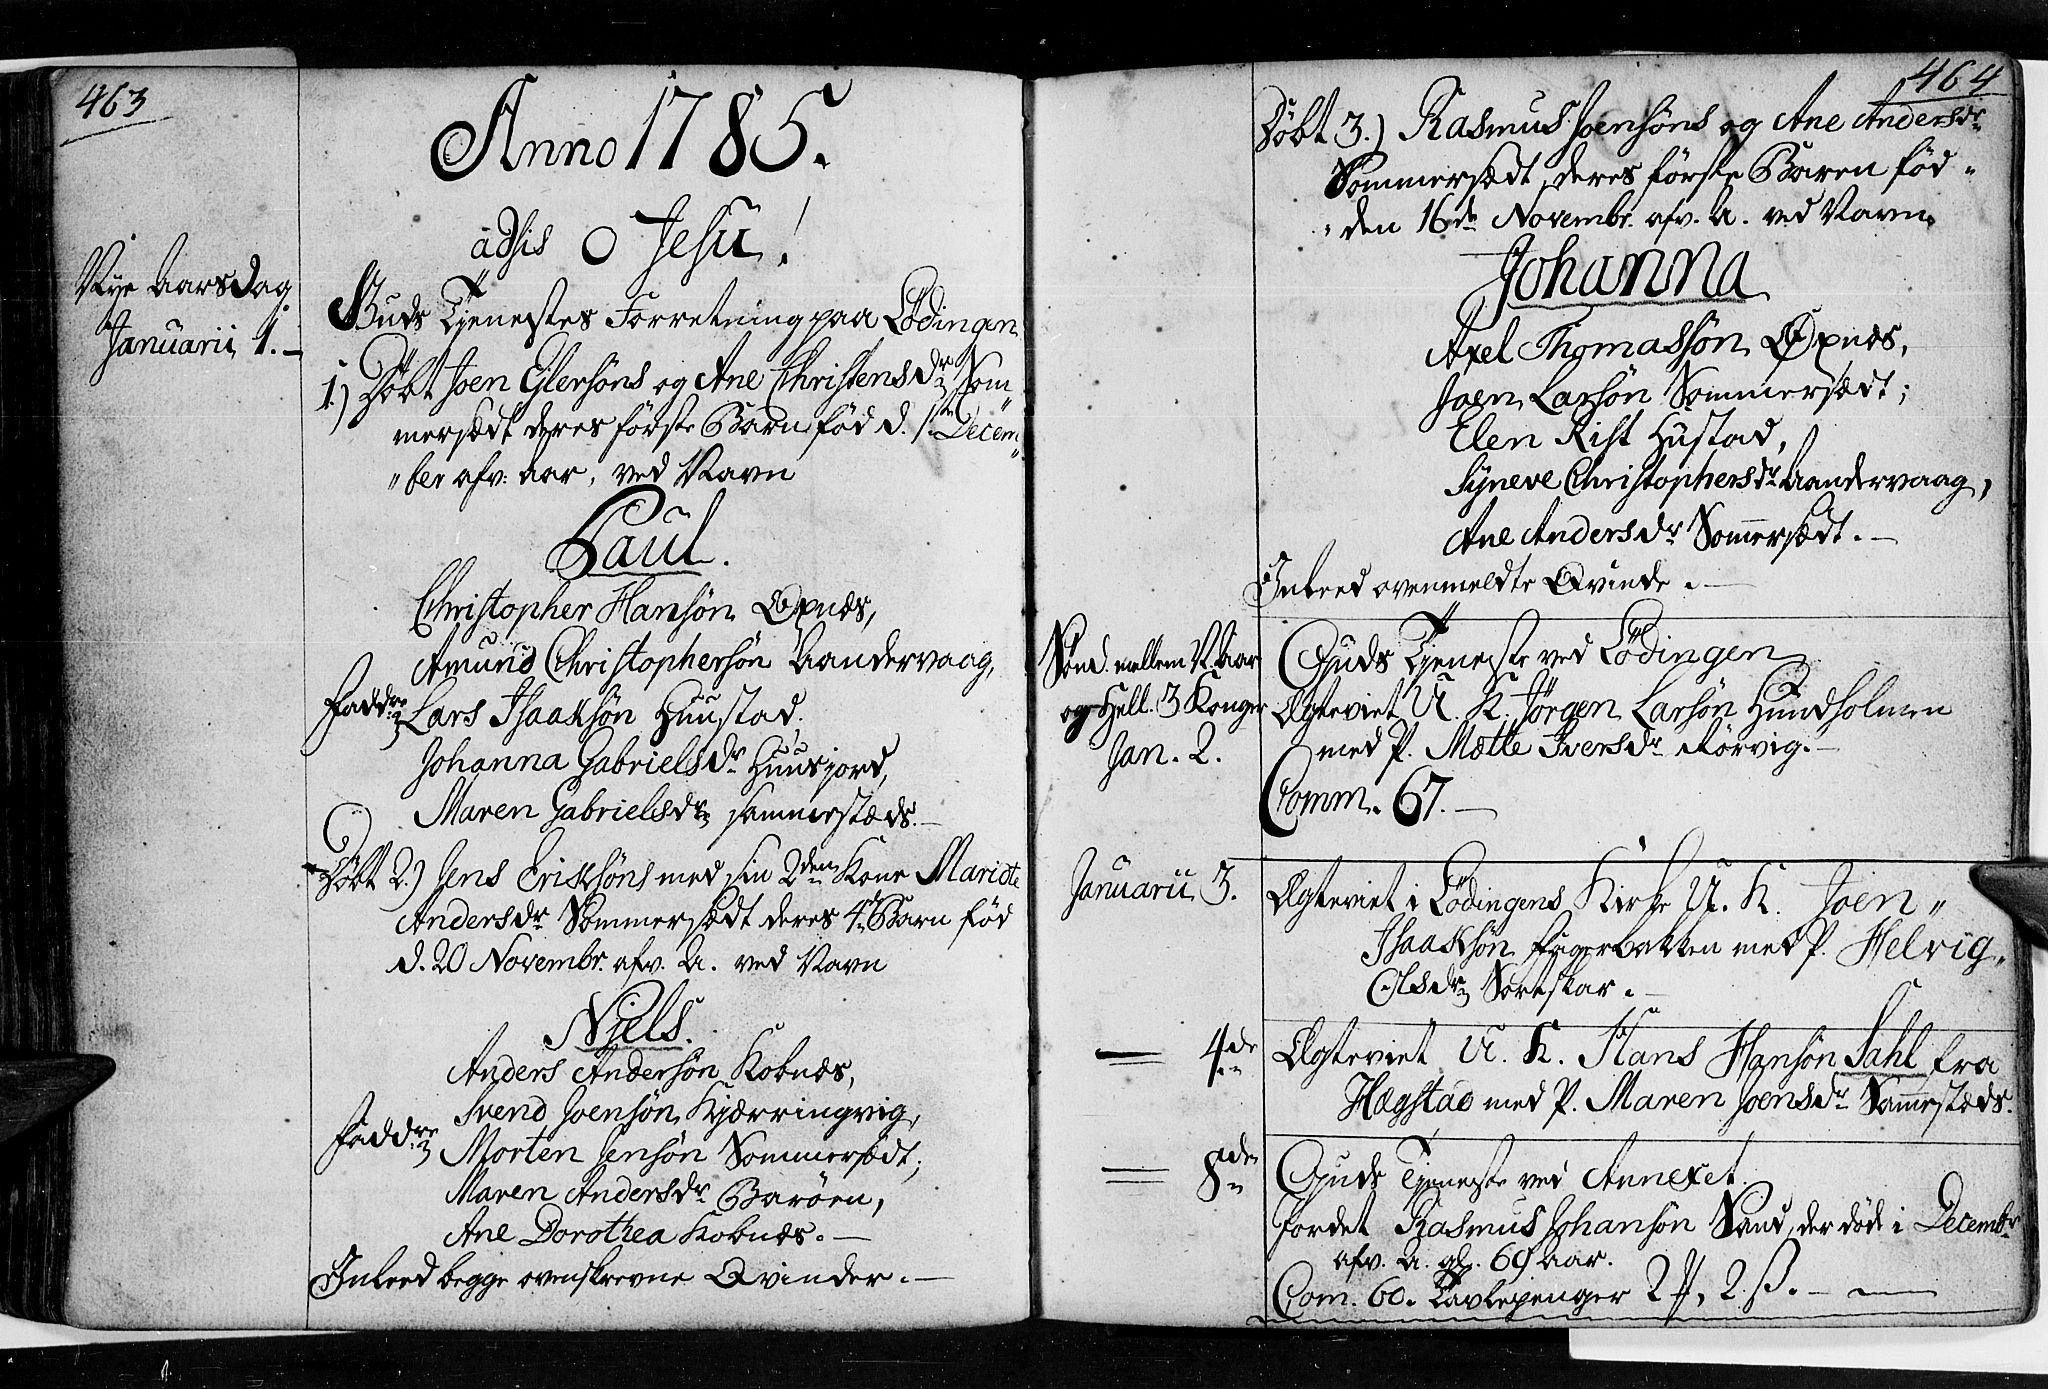 463
Anno 1785.
adsis O Jesu!
Nye Aarsdag
Januarii 1.
Guds Tjenestes Forretning paa Lödingen
1.) Döbt Joen Elersöns og Ane Christensdr Som=
mersædt deres förste Barn föd d. 1ste Decem
"ber afv: Aar, ved Navn
Paul.
Christopher Hansön Oxnæs,
Amund Christophersön Aandervaag,
Faddre Lars Isaaksön Huustad.
Johanna Gabrielsdr Huusjord,
Maren Gabrielsdr sammestæds.
Döbt 2.) Jens Eriksöns med sin 2den Kone Maridte
Andersdr Sommersædt deres 4de Barn föd
d. 20 Novembr. afv. A. ved Navn
Njels.
Anders Andersön Kobnæs,
Svend Joensön Kjærringvig,
Faddre Morten Jensön Sommersædt;
Maren Andersdr Baröen,
Ane Dorothea Kobnæs.
Inleed begge ovenskrevne Qvinder.
464
Döbt 3.) Rasmus Joensöns og Ane Andersdr
Sommersædt deres förste Baren föd=
"den 16de Novembr. afv. A. ved Navn
Johanna
Axel Thomassön Oxnæs,
Joen Larsön Sommersædt;
Elen Rist Hustad,
Syneve Christophersdr Aandervaag,
Ane Andersdr Sommersædt.
Inleed ovenmeldte Qvinde.
Sönd. mellem N. Aar
og Hell. 3 Konger
Jan. 2.
Guds Tjeneste ved Lödingen
Ægteviet U. K. Jörgen Larsön Hundholmen
med P. Mætte Iversdr Rörvig.
Comm. 67.
Januarii 3.
Ægteviet i Lödingens Kirke U. K. Joen"
Isaaksön Fugerbakken med P. Helvig
Olsdr Sortskar.
— 4de
Ægteviet U. K. Hans Hansön Sahl fra
Hægstad med P. Maren Joensdr Sammestæds.
— 8de
Guds Tjeneste ved Annexet.
Jordet Rasmus Johansön Sand, der döde i Decembr
afv. A. gl. 69 aar.
Com. 60. Tavlepenger 2 #, 2 ß.